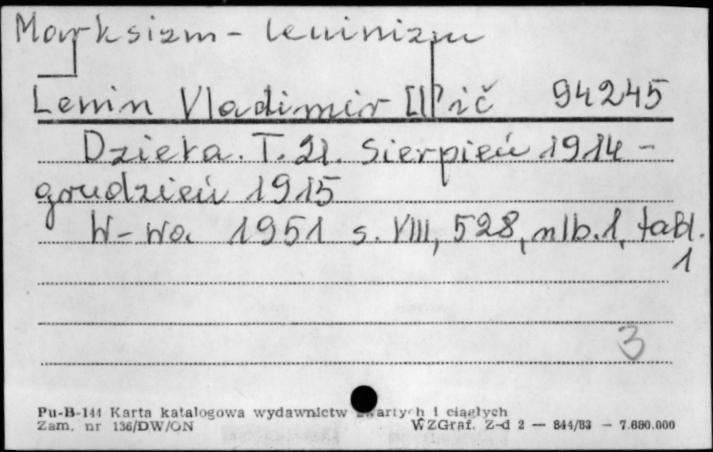 Marksizm - leninizm
Lenin Vladimir Il'ič 94245
Dzieła. T. 21. Sierpień 1914 -
grudzień 1915
W-wa 1951 s. VIII, 528, nlb. 1, tabl.
1
3
Pu-B-144 Karta katalogowa wydawnictw zwartych i ciągłych
Zam. nr 136/DW/ON WZGraf. Z-d 2 — 844/83 — 7.680.000